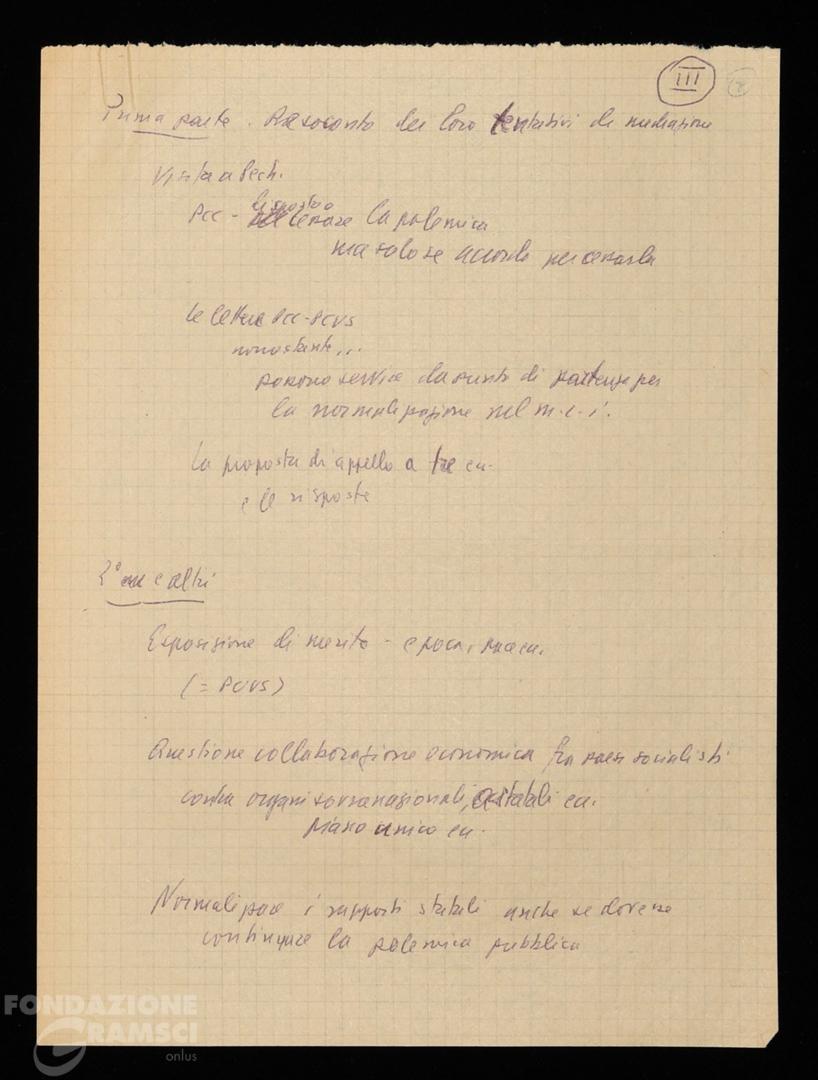 III
Prima parte. Resoconto dei loro tentativi di mediazione
Visita a Pech.
PCC - disposto a cessare la polemica
ma solo se accordo per cessarla
Le lettere PCC-PCUS
nonostante...
possono servire da punto di partenza per
la normalizzazione nel m.c.i.
La proposta di appello a tre ecc.
e le risposte
2° e altri
Esposizione di merito - epoca, pace ecc.
(= PCUS)
Questione collaborazione economica fra paesi socialisti
contro organi sovranazionali, statali ecc.
Piano unico ecc.
Normalizzare i rapporti statali anche se dovesse
continuare la polemica pubblica
FONDAZIONE
GRAMSCI
onlus